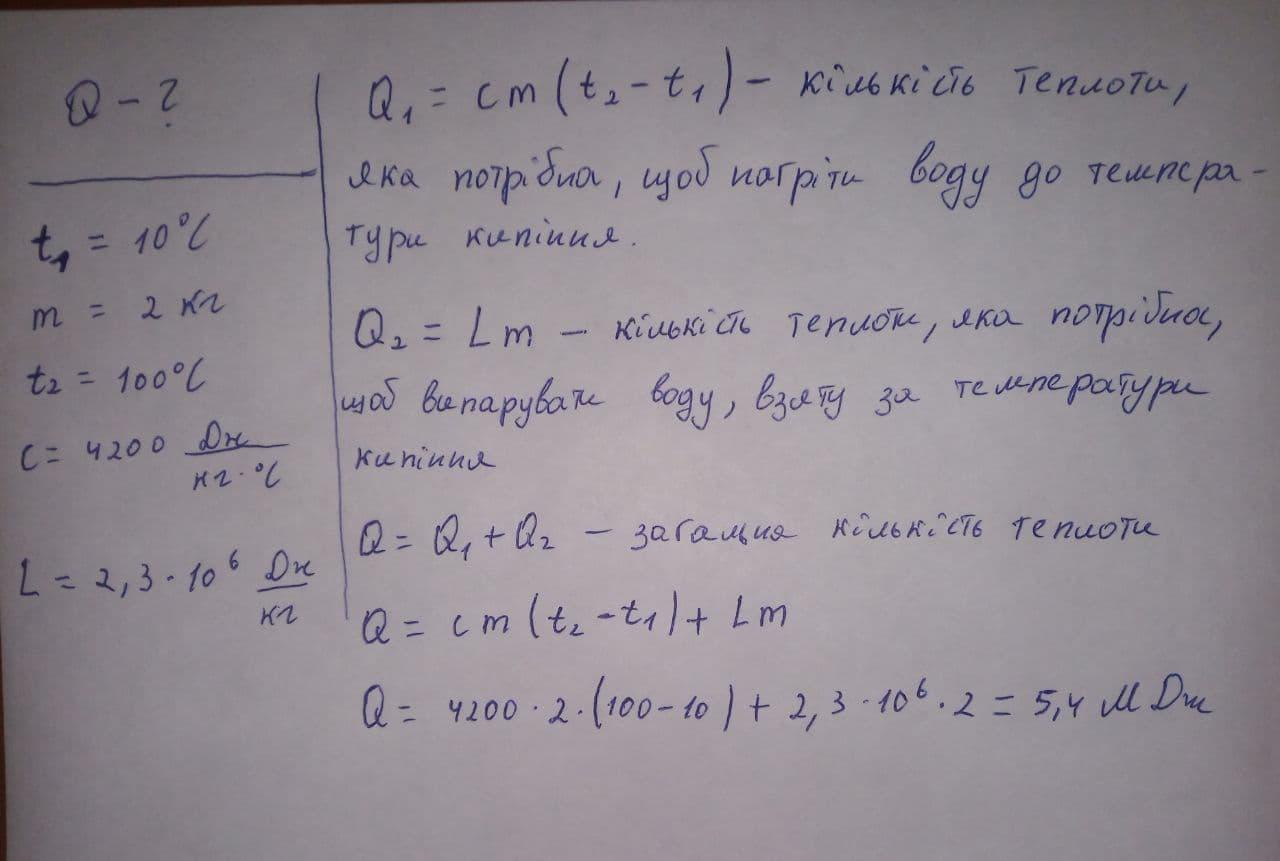 Q – ?
t₁ = 10°C
m = 2 кг
t₂ = 100°C
c = 4200 Дж/кг·°C
L = 2,3·10⁶ Дж/кг
Q₁ = cm(t₂ – t₁) – кількість теплоти,
яка потрібна, щоб нагріти воду до темпера-
тури кипіння.
Q₂ = Lm – кількість теплоти, яка потрібна,
щоб випарувати воду, взяту за температури
кипіння
Q = Q₁ + Q₂ – загальна кількість теплоти
Q = cm(t₂ – t₁) + Lm
Q = 4200 · 2 · (100 – 10) + 2,3 · 10⁶ · 2 = 5,4 МДж